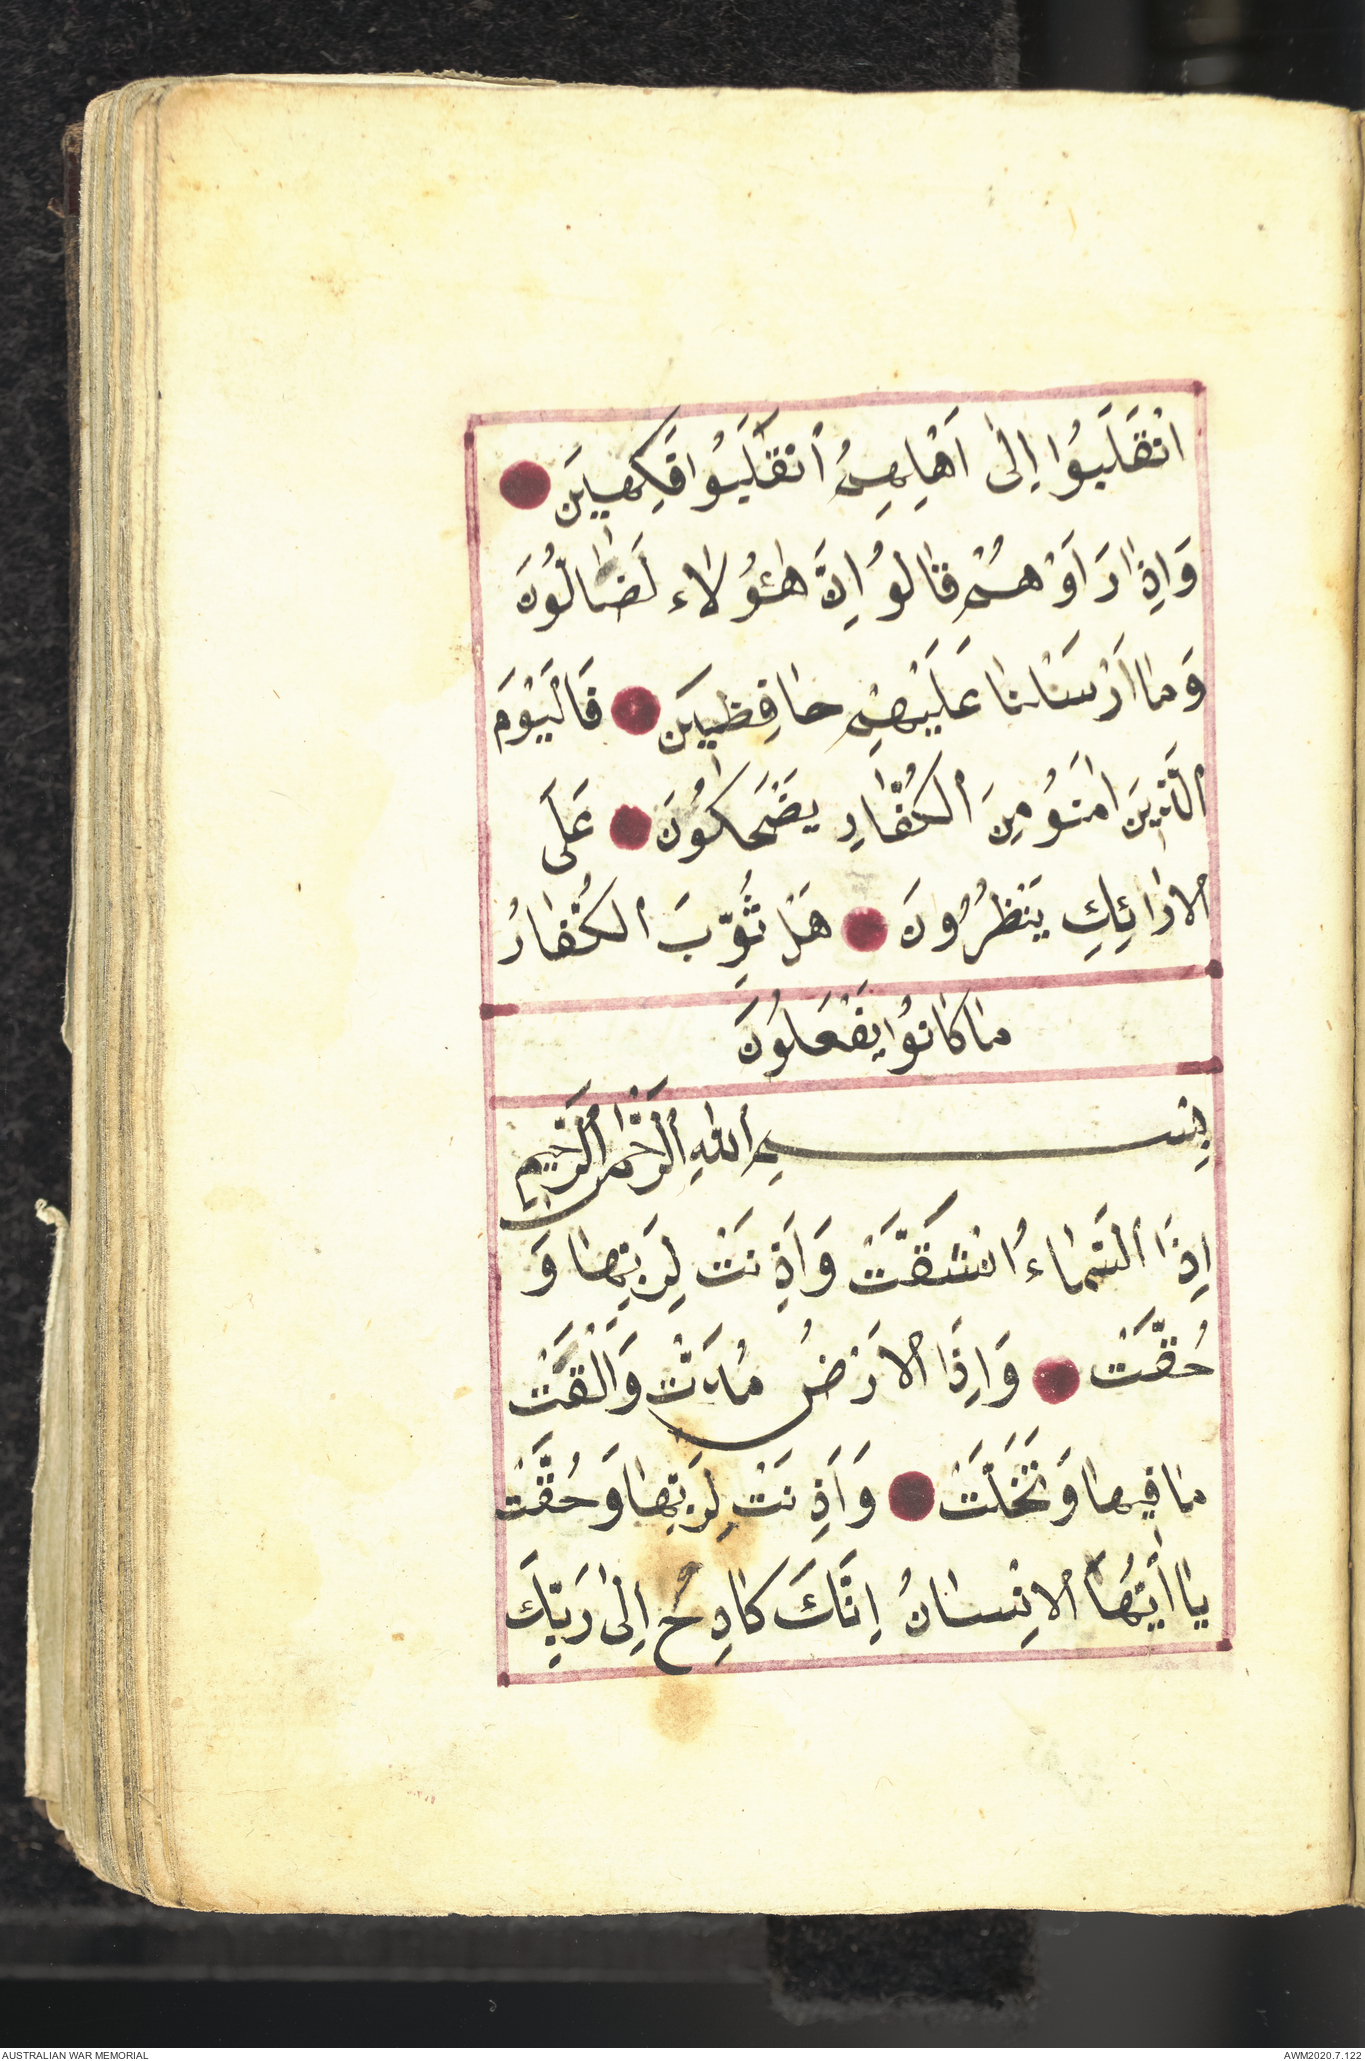 انْقَلَبُوا اِلٰى اَهْلِهِمُ انْقَلَبُوا فَكِهِينَ
وَاِذَا رَاَوْهُمْ قَالُوُ اِنَّ هٰئُوُلَاء لَضَالُّونَ
وَمَا اَرْسَلْنَا عَلَيْهِمْ حَافِظِينَ فَالْيَوْمَ
الَّذِينَ اٰمَنُو مِنَ الْكُفَّارِ يَضْحَكُونَ عَلَى
الارَائِكِ يَنْظُرُونَ هَلْ ثُوِّبَ الكُفَّارُ
مَا كَانُوا يَفْعَلُونَ
بِسْــــمِ اللهِ الرَّحْمٰنِ الرَّحِيمِ
اِذَا السَّمَاءُ انْشَقَّتْ وَاَذِنَتْ لِرَبِّهَا وَ
حُقَّتْ وَاِذَا الارَْضُ مُدَّتْ وَاَلْقَتْ
مَا فِيهَا وَتَخَلَّتْ وَاَذِنَتْ لِرَبِّهَا وَحُقَّتْ
يَا اَيُّهَا الاِنْسَانُ اِنَّكَ كَادِحٌ اِلٰى رَبِّكَ
AUSTRALIAN WAR MEMORIAL
AWM2020.7.122